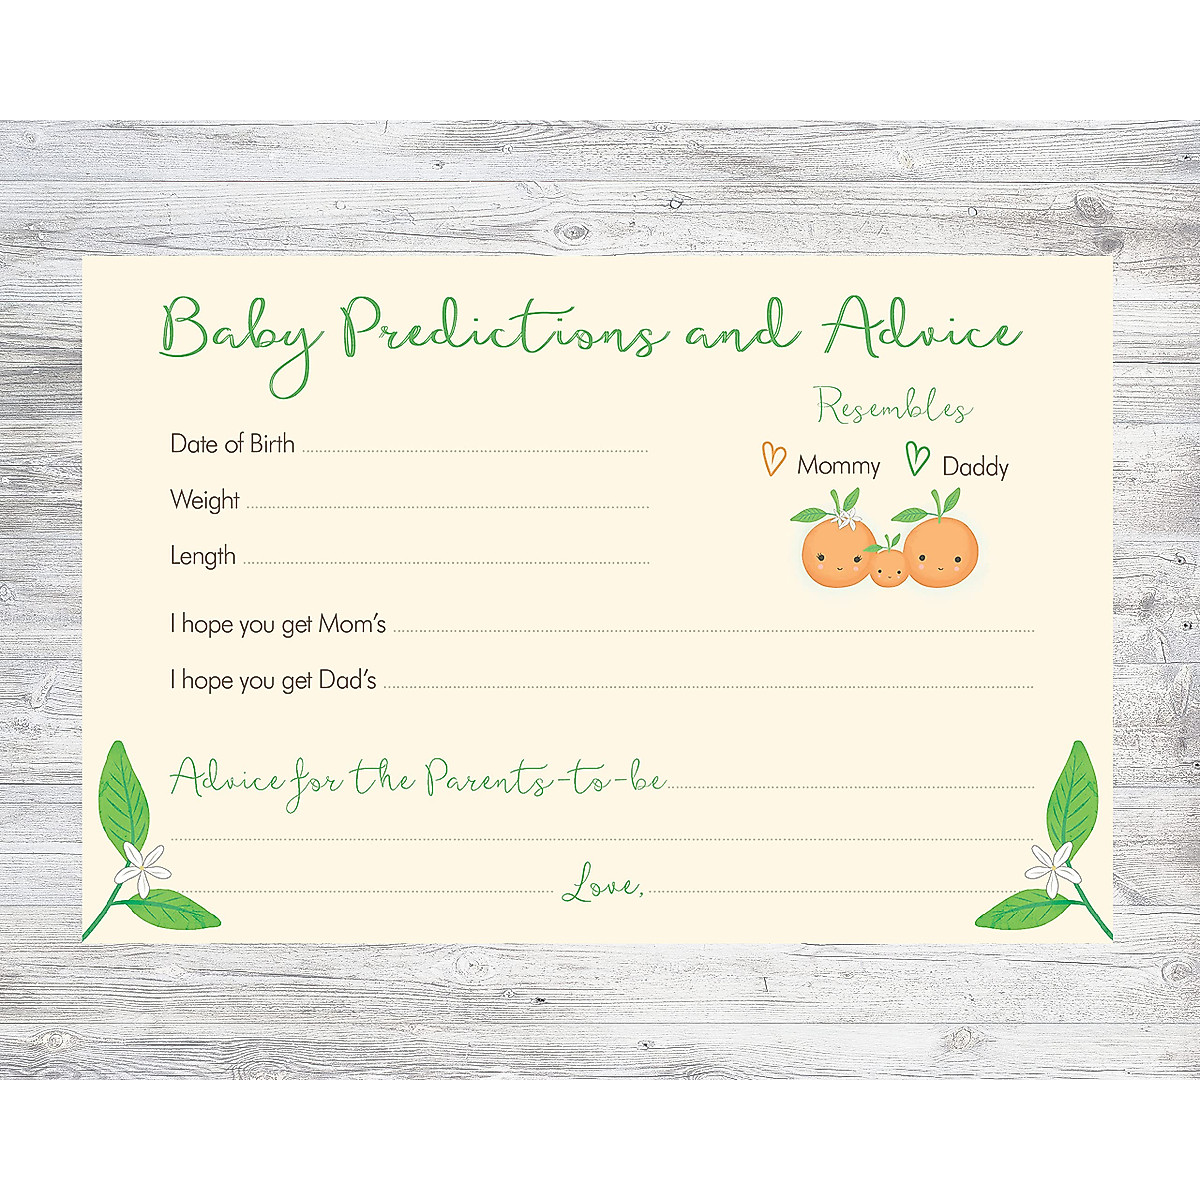 Baby Predictions and Advice
Resembles
Mommy Daddy
Date of Birth
Weight
Length
I hope you get Mom's
I hope you get Dad's
Advice for the Parents-to-be
Love,